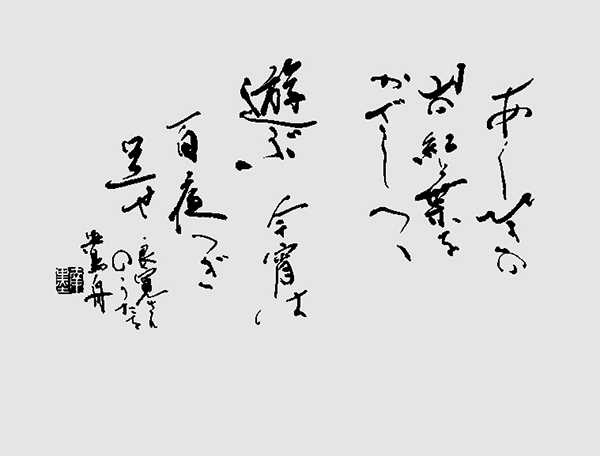 あしびきの
紅葉を
かざしつつ
遊ぶ
今宵は
百夜つぎ
せ
良寛さん
のうたを
舟